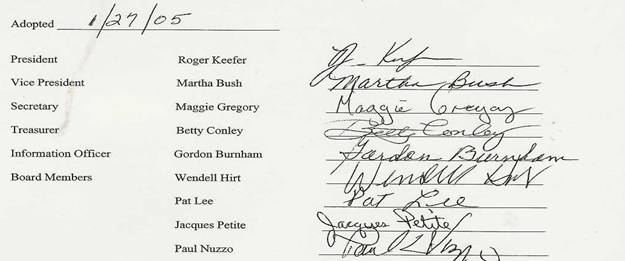 Adopted 1/27/05
President Roger Keefer
Vice President Martha Bush Martha Bush
Secretary Maggie Gregory Maggie Gregory
Treasurer Betty Conley Betty Conley
Information Officer Gordon Burnham Gordon Burnham
Board Members Wendell Hirt Wendell Hirt
Pat Lee Pat Lee
Jacques Petite Jacques Petite
Paul Nuzzo Paul